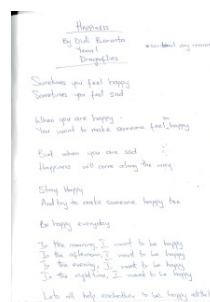 Happiness
By Didi
Year 1
Dragonflies
Sometimes you feel happy
Sometimes you feel sad
When you are happy
You want to make someone feel happy
But when you are sad
Happiness will come along the way
Stay Happy
And try to make someone happy too
Be happy everyday
In the morning, I want to be happy
In the afternoon, I want to be happy
In the evening, I want to be happy
In the night time, I want to be happy
Lets all help eachother to be happy